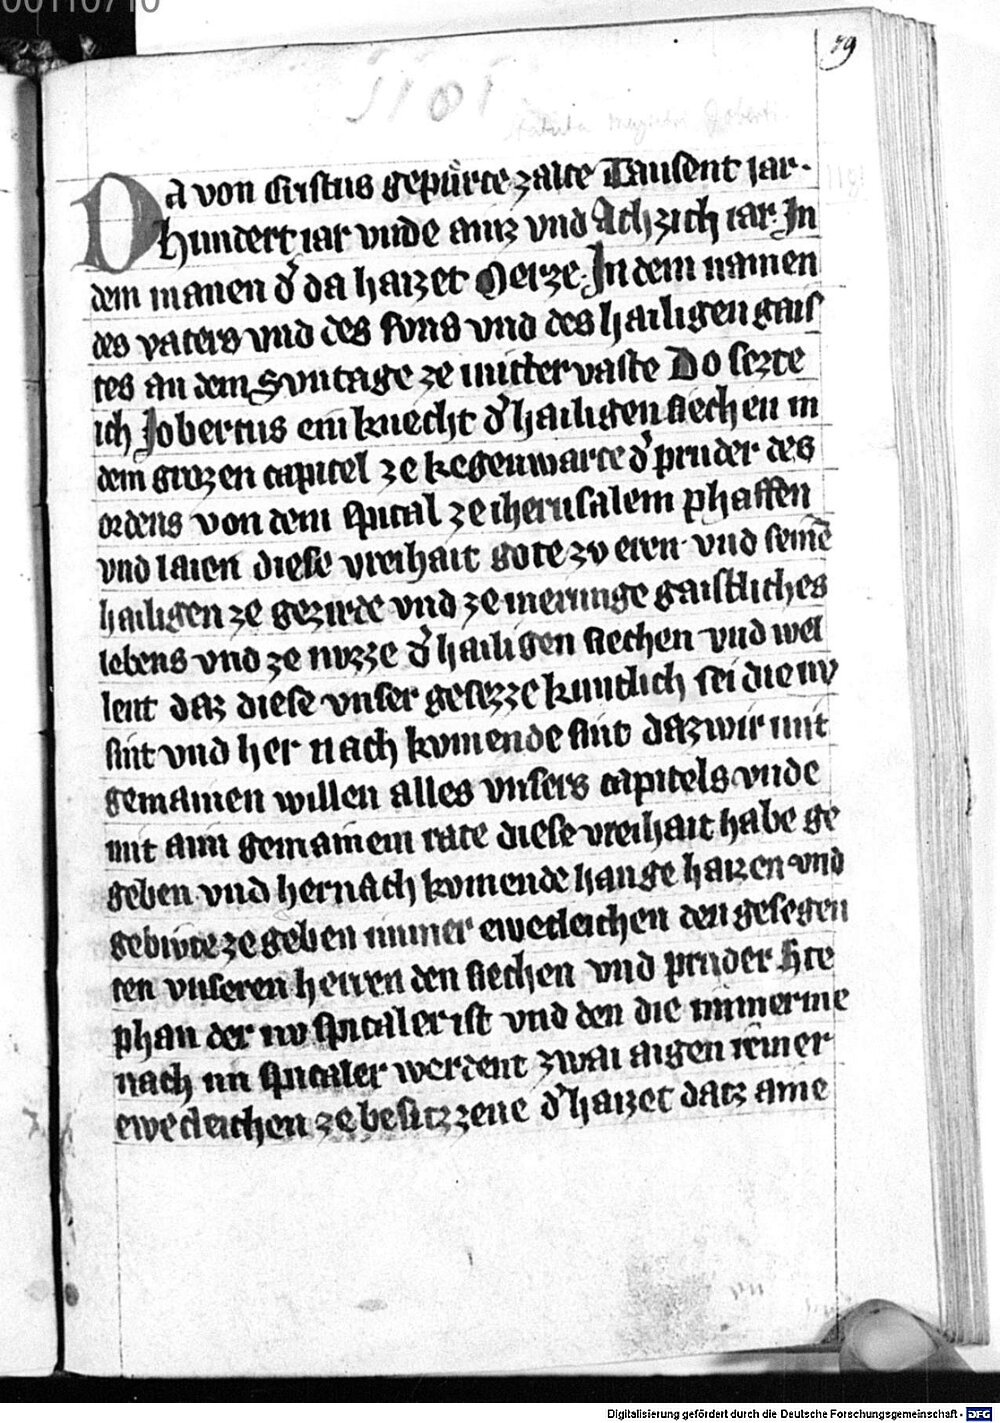 00110710
79
1181
Statuta Magistri Joberti
DA von cristus gepůrte zalte Tausent iar·
hundert iar vnde ainz vnd Achzich iar· In
dem manen d̓ da haizet Merze· In dem namen
des vaters vnd des suns vnd des hailigen gais
tes an dem Svntage ze mitter vaste Do sezte
ich Jobertus ein knecht d̓ hailigen siechen in
dem grozen capitel ze kegenwarte d̓ pruder des
ordens von dem spital ze iherusalem phaffen
vnd laien diese vreihait gote zv eren· vnd seinē
hailigen ze gezirde vnd ze merunge gaistliches
lebens vnd ze nvzze d̓ hailigen siechen vnd wel
lent daz diese vnser gesezze kuntlich sei die nv
sint vnd her nach kvmende sint daz wir mit
gemainen willen alles vnsers capitels vnde
mit aim gemainem rate diese vreihait habe ge
geben· vnd hernach kvmende hange haizen vnd
gebivte ze geben immer ewecleichen den gesegen
ten vnseren herren den siechen vnd pruder Ste
phan der nv spitaler ist vnd den die immerme
nach im spitaler werdent zwai aigen reiner
ewecleichen ze besitzzene d̓ haizet datz aime
Digitalisierung gefördert durch die Deutsche Forschungsgemeinschaft - DFG